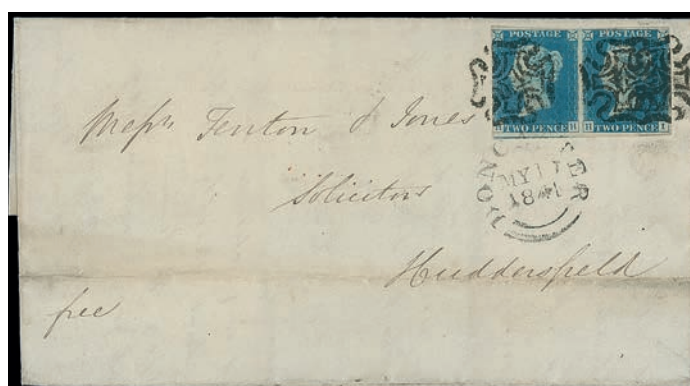 POSTAGE POSTAGE
H TWO PENCE H H TWO PENCE I
Messrs Fenton & Jones
Solicitors
MY 17
1841
Huddersfield
free